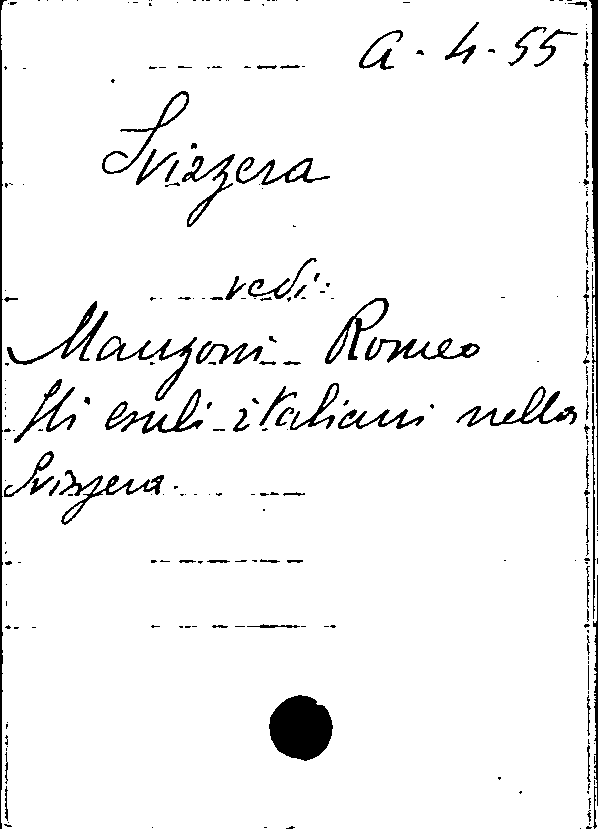 a. 4. 55
Svizzera
vedi:
Manzoni Romeo
Gli esuli italiani nella
Svizzera.